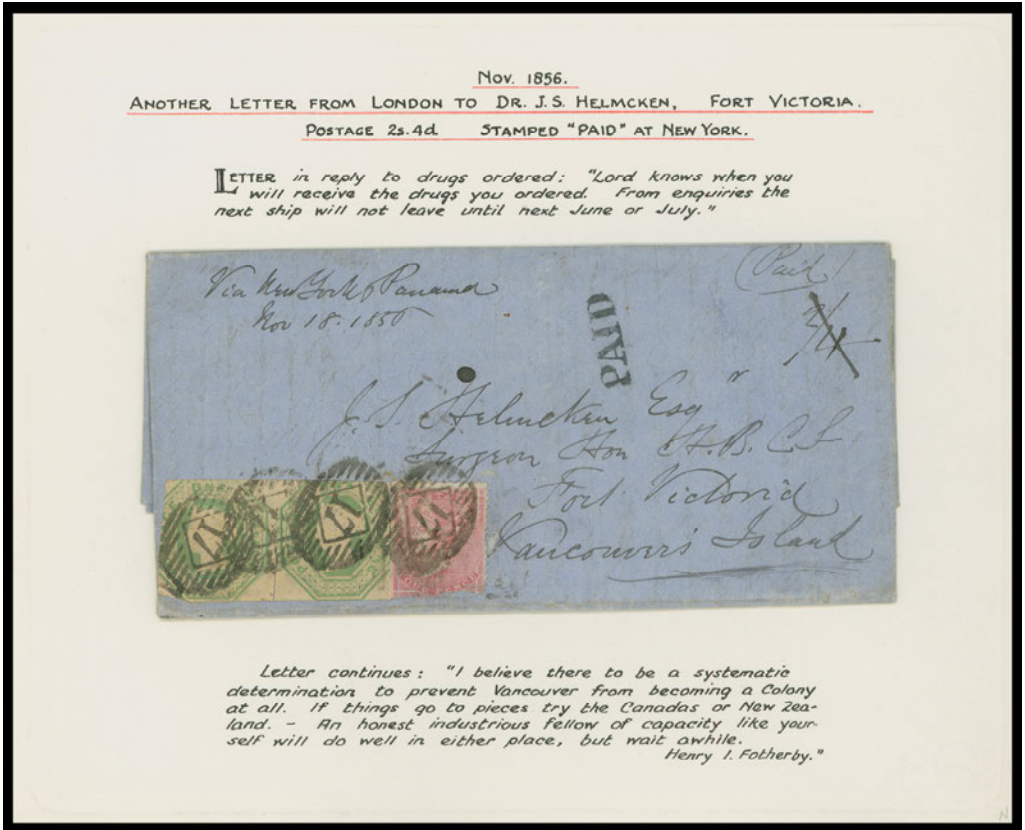 Nov. 1856.
ANOTHER LETTER FROM LONDON TO DR. J.S. HELMCKEN, FORT VICTORIA.
POSTAGE 2s.4d STAMPED "PAID" AT NEW YORK.
LETTER in reply to drugs ordered: "Lord knows when you
will receive the drugs you ordered. From enquiries the
next ship will not leave until next June or July."
(Paid)
Via New York & Panama
Nov 18. 1856
PAID
J. S. Helmcken Esqr
Surgeon Hon H. B. C S
Fort Victoria
Vancouver's Island
17
17
17
Letter continues: "I believe there to be a systematic
determination to prevent Vancouver from becoming a Colony
at all. If things go to pieces try the Canadas or New Zea-
land. – An honest industrious fellow of capacity like your-
self will do well in either place, but wait awhile.
Henry I. Fotherby."
N